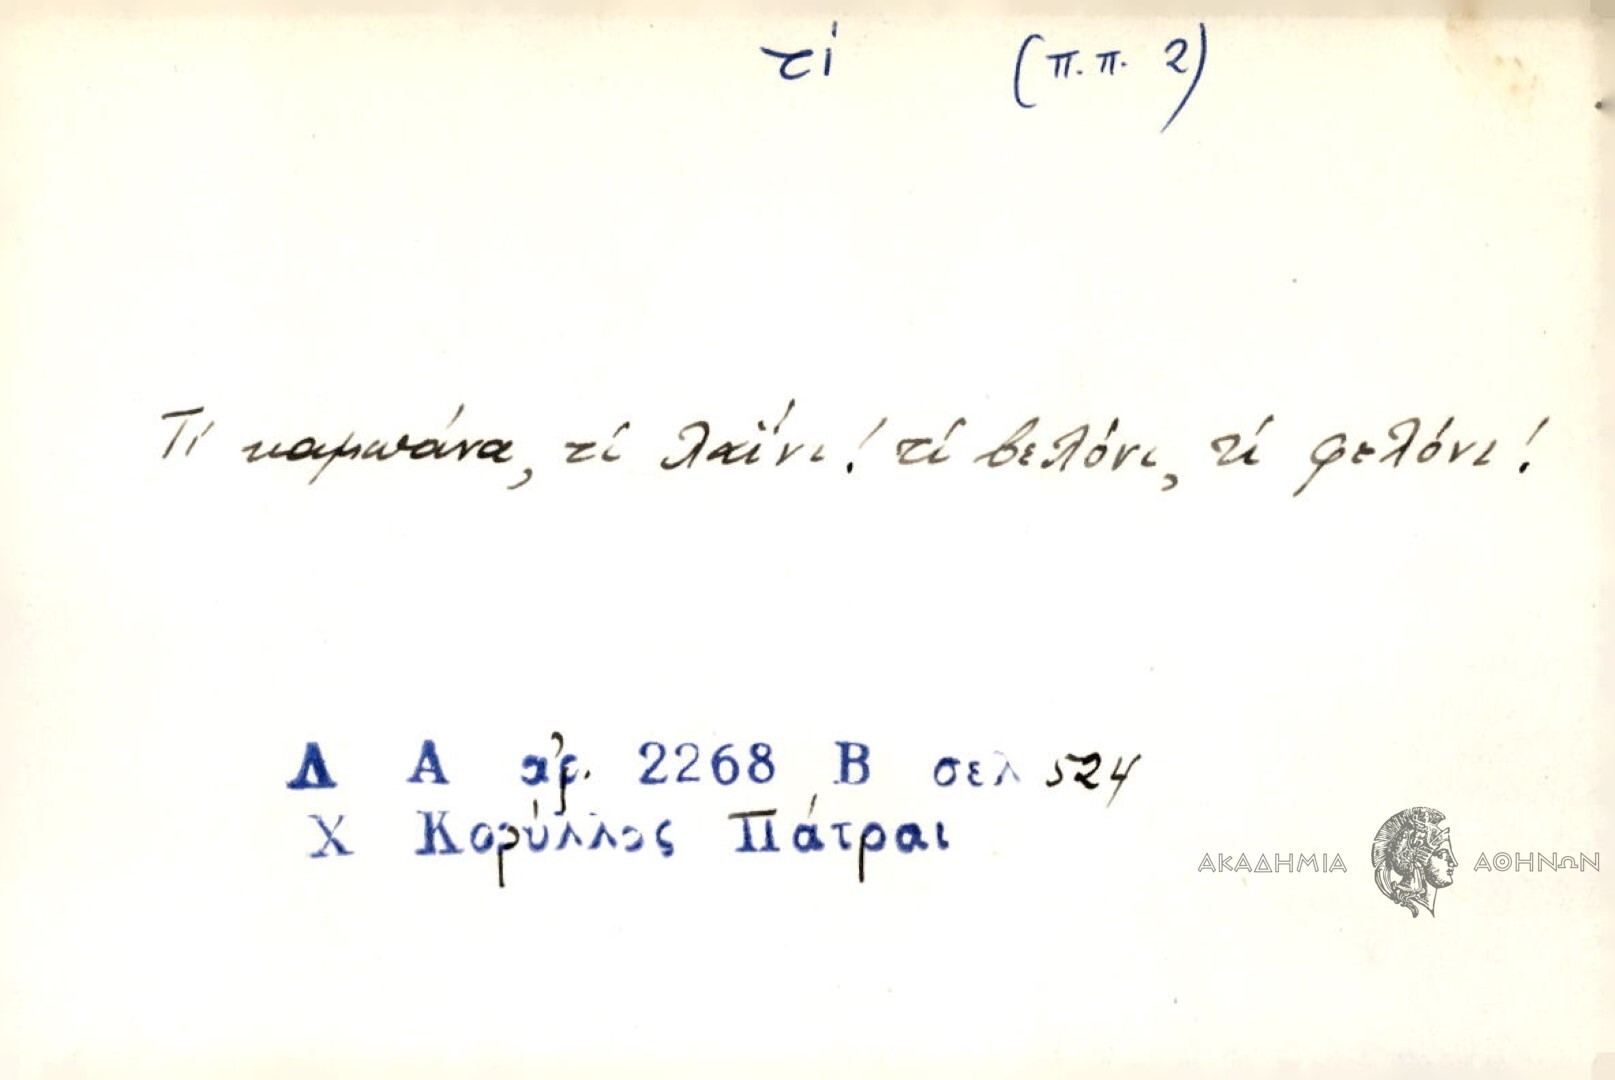 τί (π.π. 2)
Τί καμπάνα, τί λαΐνι! τί βελόνι, τί φελόνι!
Λ Α ἀρ. 2268 Β σελ 524
Χ Κορύλλος Πάτραι
ΑΚΑΔΗΜΙΑ ΑΘΗΝΩΝ